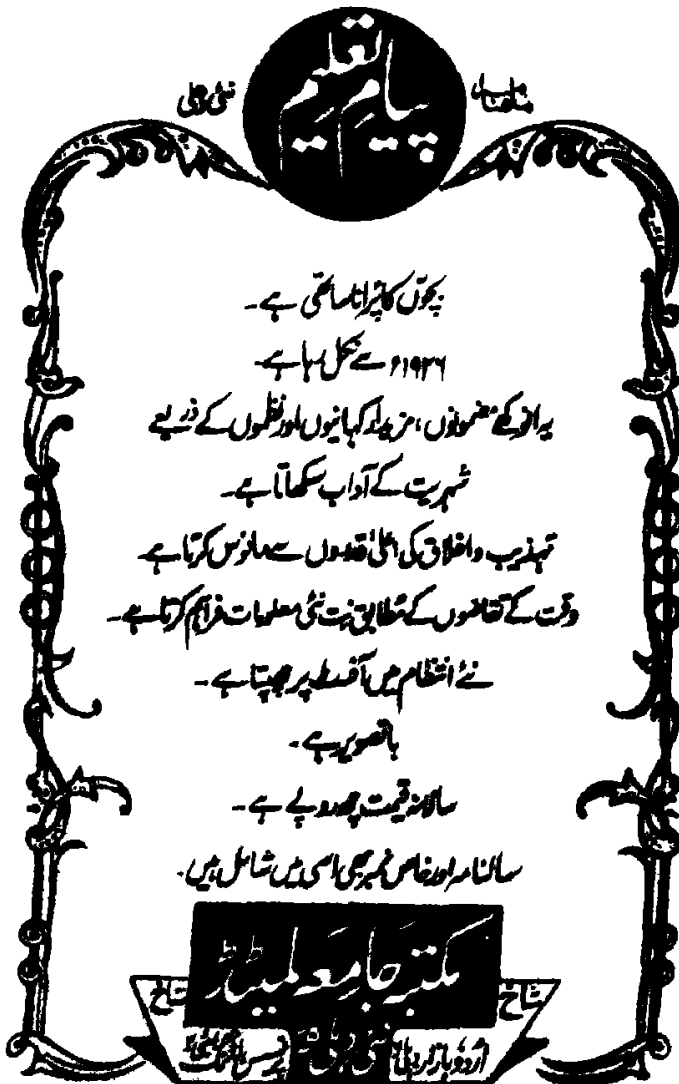 ماہنامہ پیامِ تعلیم نئی دہلی
بچوّں کا پُرانا ساتھی ہے۔
۱۹۲۶ء سے نکل رہا ہے۔
یہ انوکھے مضمونوں، مزیدار کہانیوں اور نظموں کے ذریعے
شہریت کے آداب سکھاتا ہے۔
تہذیب و اخلاق کی اعلیٰ قدروں سے مانوس کرتا ہے۔
وقت کے تقاضوں کے مُطابق نِت نئی معلومات فراہم کرتا ہے۔
نئے انتظام میں آفسٹ پر چھپتا ہے۔
باتصویر ہے۔
سالانہ قیمت چھ روپے ہے۔
سالنامہ اور خاص نمبر بھی اسی میں شامل ہیں۔
مکتبہ جَامِعَہ لمیٹڈ
شاخ شاخ
اُردُو بازار دہلی نئی دہلی پرنسس بلڈنگ